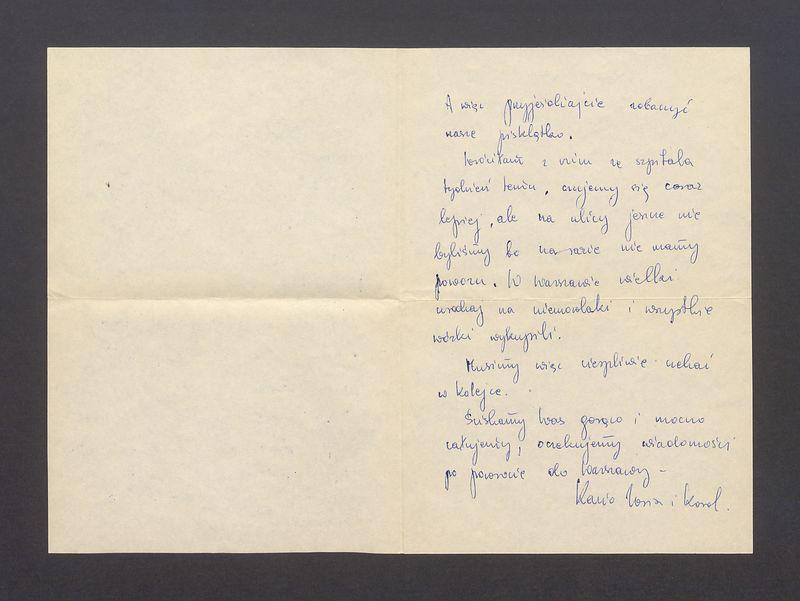 A więc przyjeżdżajcie zobaczyć
nasze pisklątko.
Wróciłam z nim ze szpitala
tydzień temu, czujemy się coraz
lepiej, ale na ulicy jeszcze nie
byliśmy bo na razie nie mamy
powozu. W Warszawie wielki
urodzaj na niemowlaki i wszystkie
wózki wykupili.
Musimy więc cierpliwie czekać
w kolejce.
Ściskamy Was gorąco i mocno
całujemy, oczekujemy wiadomości
po powrocie do Warszawy –
i Karol.